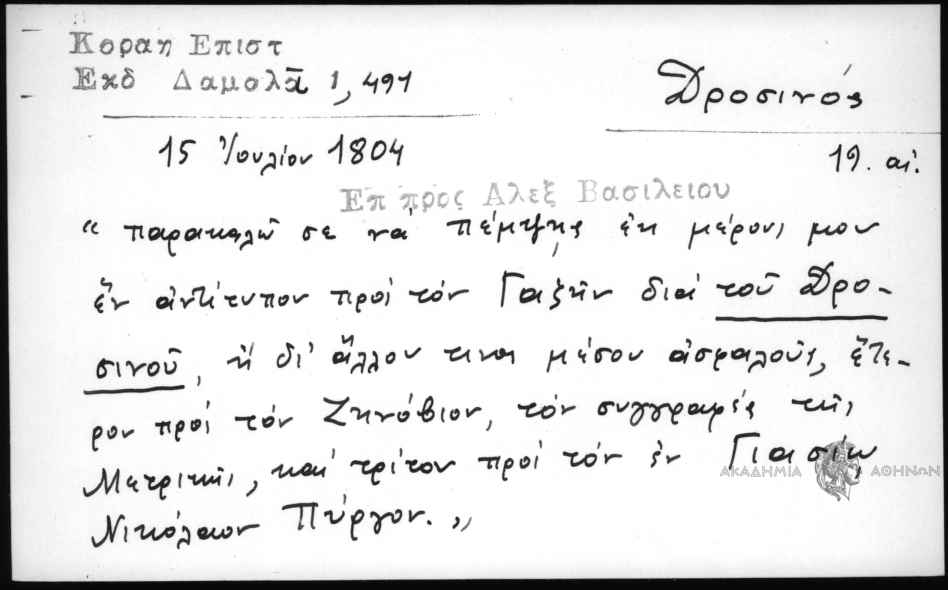 Κοραη Επιστ
Εκδ Δαμαλᾶ 1, 491
Δροσινός
15 Ἰουλίου 1804
19. αἰ.
Επ προς Αλεξ Βασιλειου
“ παρακαλῶ σε νὰ πέμψῃς ἐκ μέρους μου
ἓν ἀντίτυπον πρὸς τὸν Γαζῆν διὰ τοῦ Δρο-
σινοῦ, ἢ δι' ἄλλου τινὸς μέσου ἀσφαλοῦς, ἕτε-
ρον πρὸς τὸν Ζηνόβιον, τὸν συγγραφέα τῆς
Μετρικῆς, καὶ τρίτον πρὸς τὸν ἐν Γιασίῳ
Νικόλαον Πύργον. „
ΑΚΑΔΗΜΙΑ ΑΘΗΝΩΝ